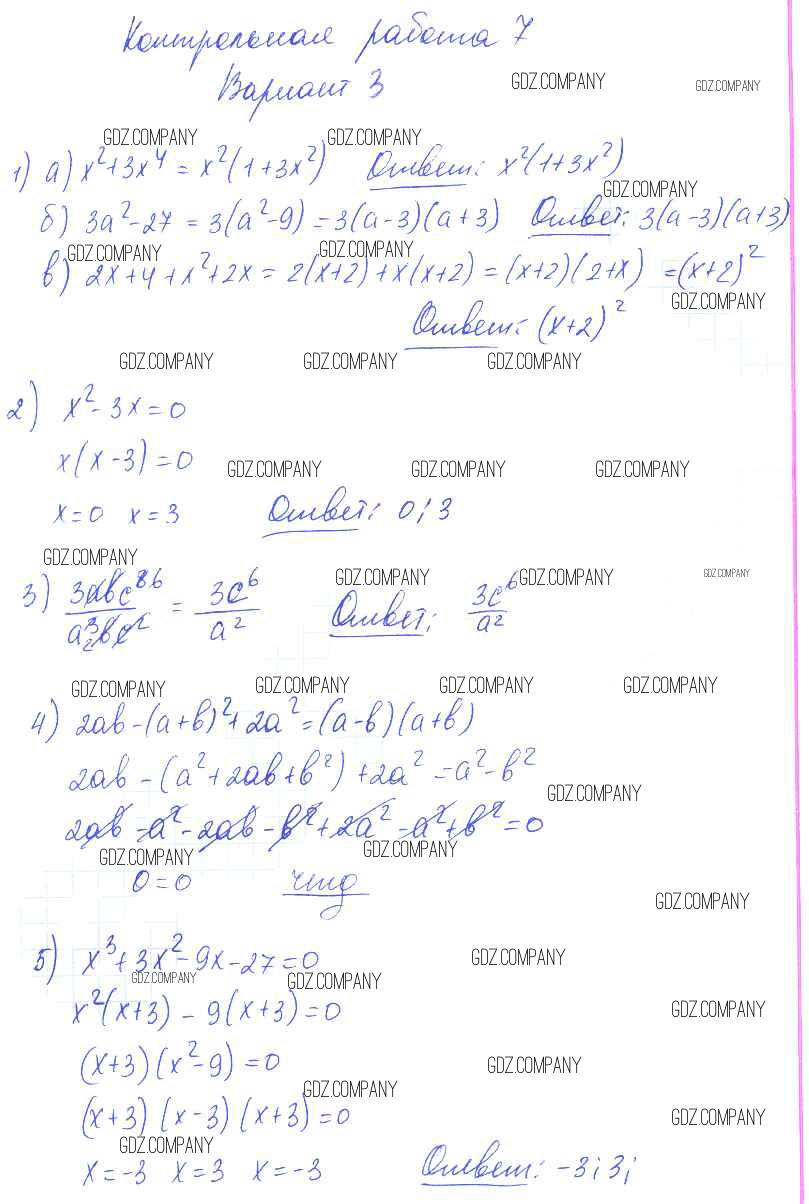 Контрольная работа 7
Вариант 3
GDZ.COMPANY GDZ.COMPANY
GDZ.COMPANY GDZ.COMPANY
1) а) x²+3x⁴ = x²(1+3x²) Ответ: x²(1+3x²)
GDZ.COMPANY
б) 3a²-27 = 3(a²-9) = 3(a-3)(a+3) Ответ: 3(a-3)(a+3)
GDZ.COMPANY GDZ.COMPANY
в) 2x+4+x²+2x = 2(x+2)+x(x+2) = (x+2)(2+x) = (x+2)²
GDZ.COMPANY
Ответ: (x+2)²
GDZ.COMPANY GDZ.COMPANY GDZ.COMPANY
2) x²-3x=0
x(x-3)=0
GDZ.COMPANY GDZ.COMPANY GDZ.COMPANY
x=0 x=3 Ответ: 0; 3
GDZ.COMPANY
GDZ.COMPANY GDZ.COMPANY GDZ.COMPANY
3) 3abc⁸ ⁶ / a³ ₂bc² = 3c⁶/a² Ответ: 3c⁶/a²
GDZ.COMPANY GDZ.COMPANY GDZ.COMPANY GDZ.COMPANY
4) 2ab-(a+b)²+2a²=(a-b)(a+b)
2ab-(a²+2ab+b²)+2a²=a²-b²
GDZ.COMPANY
2ab-a²-2ab-b²+2a²-a²+b²=0
GDZ.COMPANY GDZ.COMPANY
0=0 чтд
GDZ.COMPANY
5) x³+3x²-9x-27=0
GDZ.COMPANY
GDZ.COMPANY GDZ.COMPANY
x²(x+3)-9(x+3)=0
GDZ.COMPANY
(x+3)(x²-9)=0
GDZ.COMPANY
GDZ.COMPANY
(x+3)(x-3)(x+3)=0
GDZ.COMPANY
GDZ.COMPANY
x=-3 x=3 x=-3 Ответ: -3; 3;